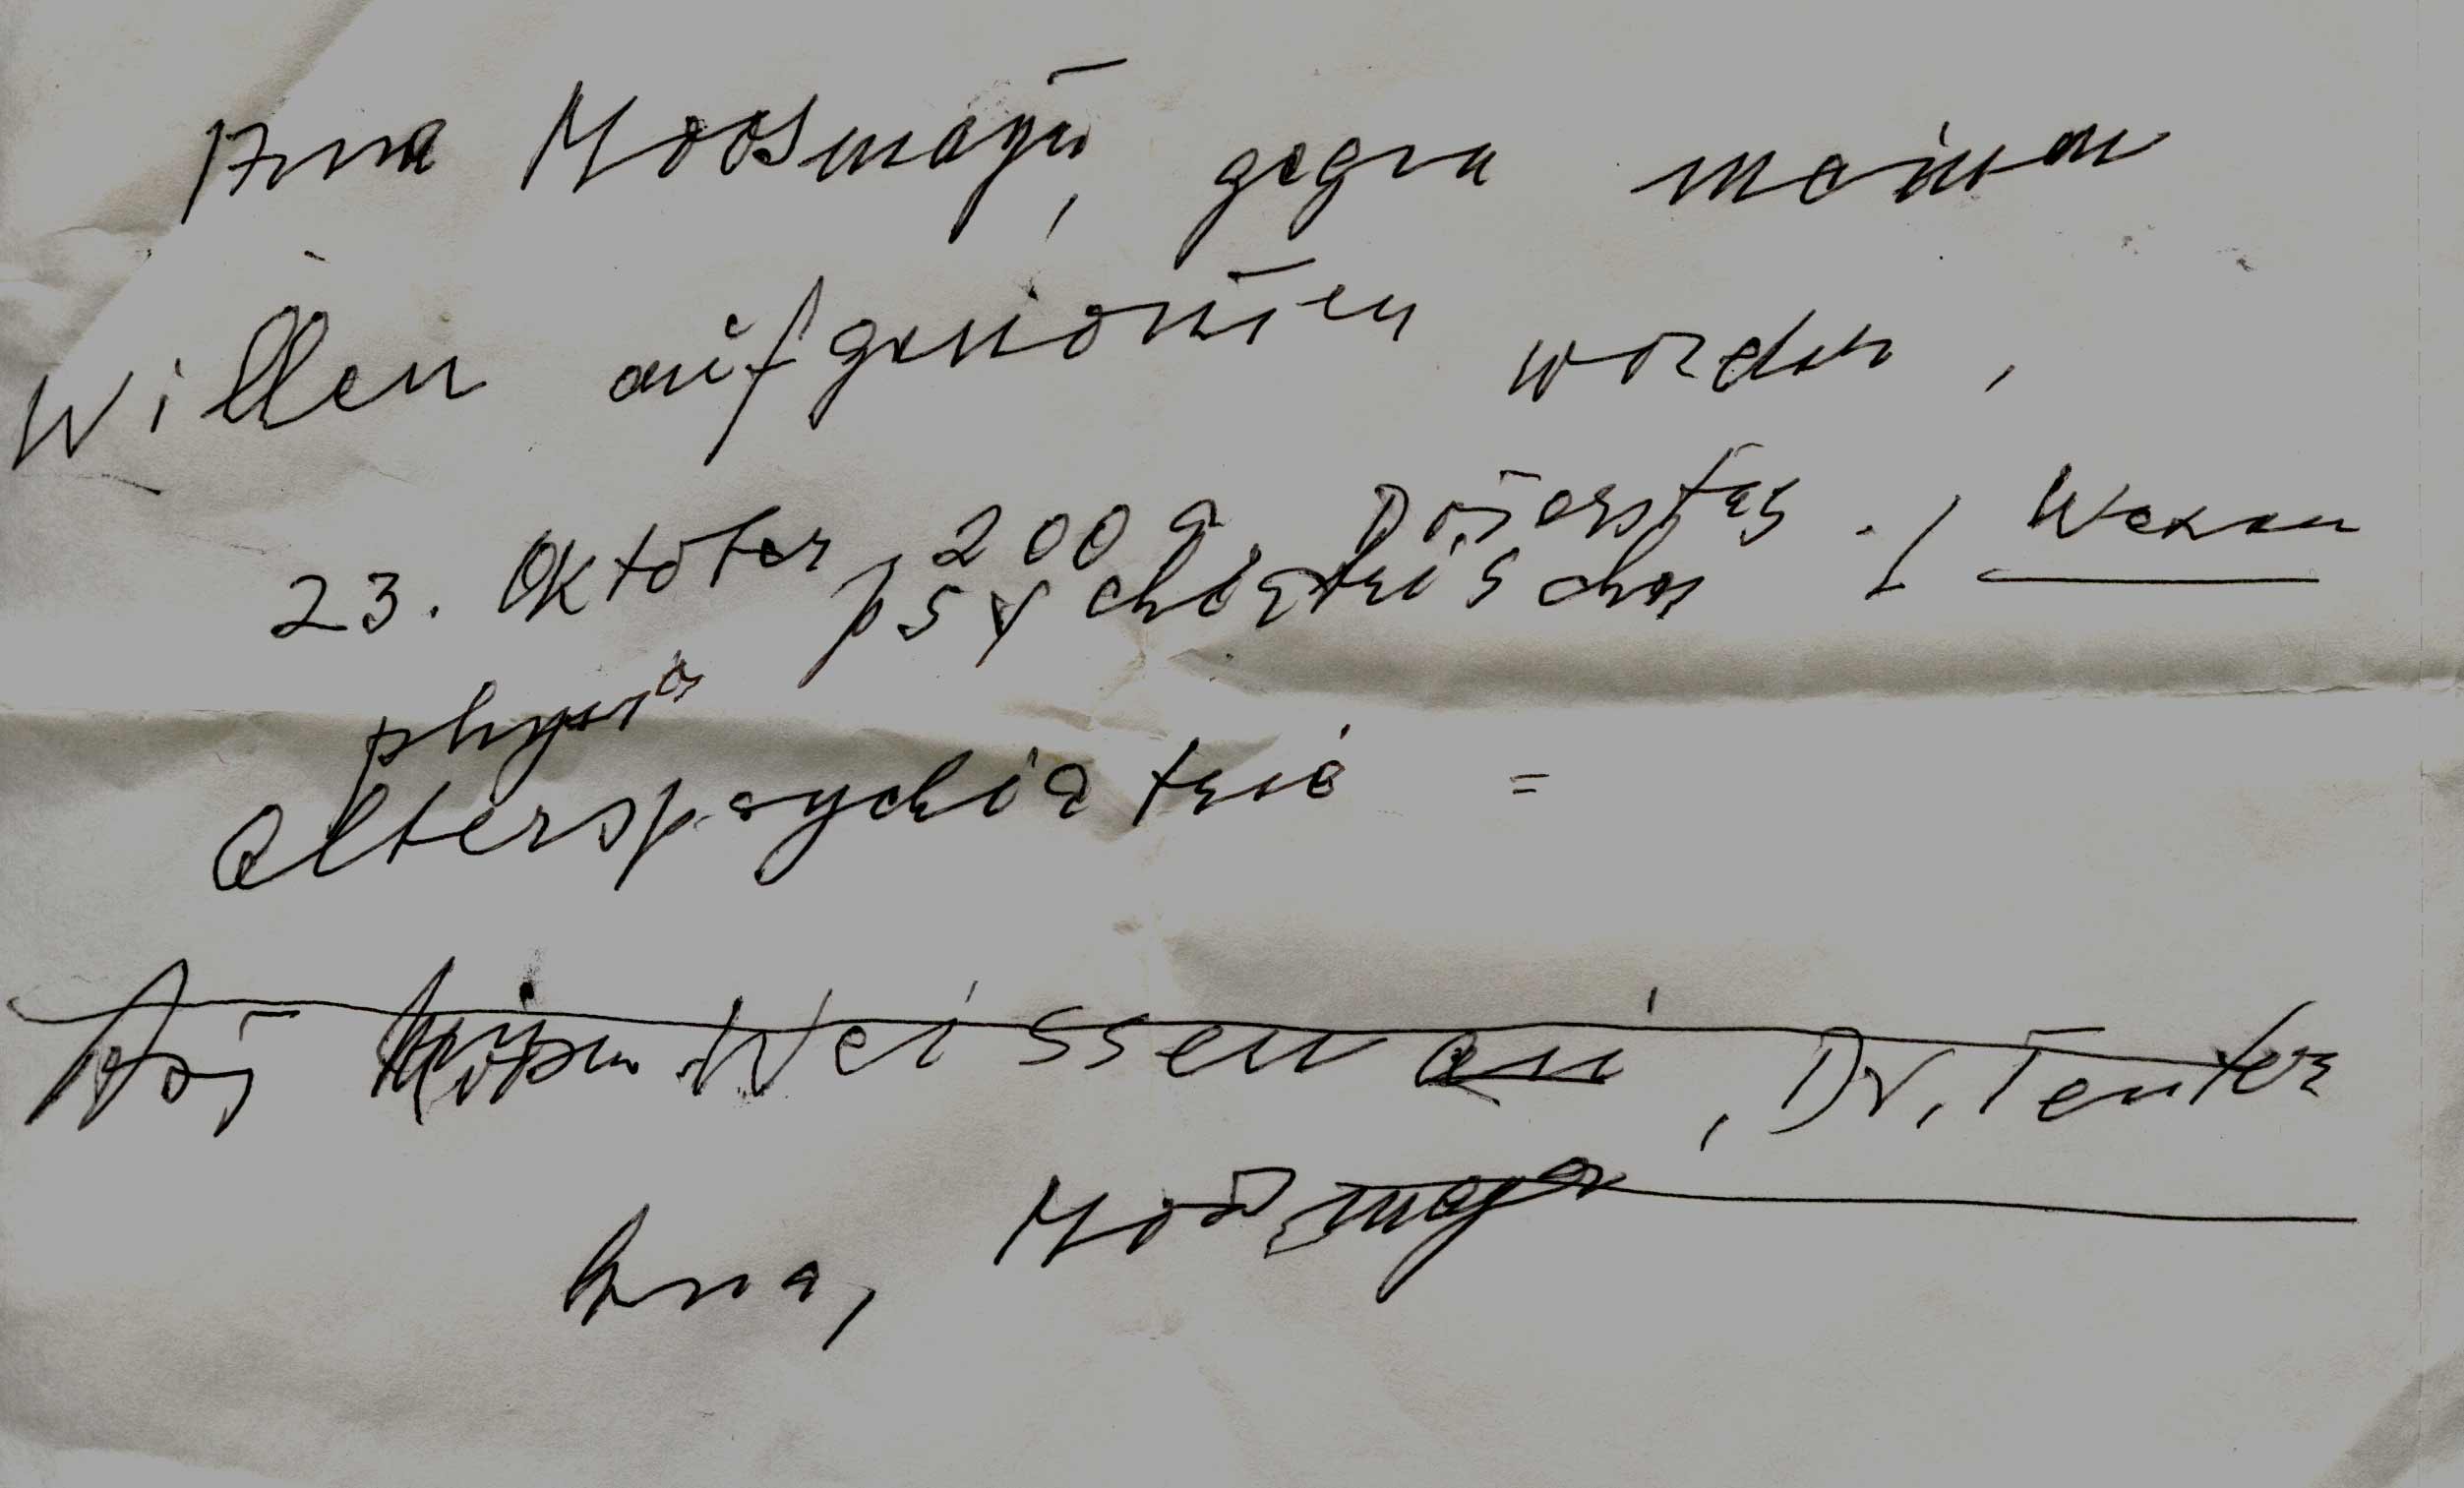 Anna Moosmayer, gegen meinen
Willen aufgenommen worden,
23. Oktober 2009. Donnerstag.
psychiatrischer
Alterspsychiatrie =
Weissenau, Dr. Tenter
Anna, Moosmayer